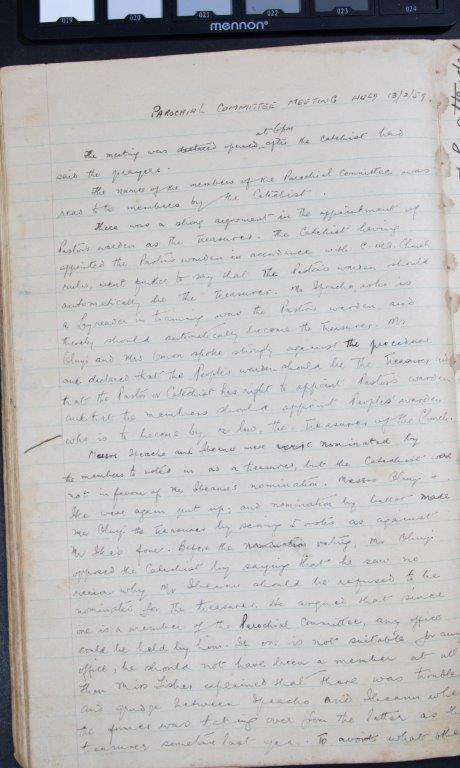 019 020 021 022 023 024
mennon
PAROCHIAL COMMITTEE MEETING HELD 13/2/59.
at 6pm
The meeting was declared opened after the Catechist had
said the prayers.
The names of the members of the Parochial Committee was
read to the members by the Catechist.
There was a strong argument in the appointment of
Pastor's warden as the Treasurer. The Catechist having
appointed the Pastor's warden in accordance with C.M.S. Church
rules, went further to say that the Pastor's warden should
automatically be the Treasurer. Mr who is
a Layreader in training was the Pastor's warden and
thereby should automatically become the Treasurer. Mr
and Mrs spoke strongly against the procedure
and declared that the People's warden should be the Treasurer and
that the Pastor or Catechist has right to appoint Pastor's warden
and that the members should appoint People's warden
who is to become by law, the Treasurer of the Church.
Messrs and were nominated by
the members to voted in as a treasurer, but the Catechist were
not in favour of Mr nomination. Messrs +
were again put up; and nomination by ballot made
Mr the Treasurer by saving 5 votes as against
Mr four. Before the nomination voting, Mr
opposed the Catechist by saying that he saw no
reason why Mr should be refused to be
nominated for the treasurer. He argued that since
one is a member of the Parochial Committee, any office
could be held by him. If one is not suitable for any
office, he should not have been a member at all
Then Miss Fisher explained that there was trouble
and grudge between and when
the former was taking over from the latter as the
treasurer sometime last year. To avoid what